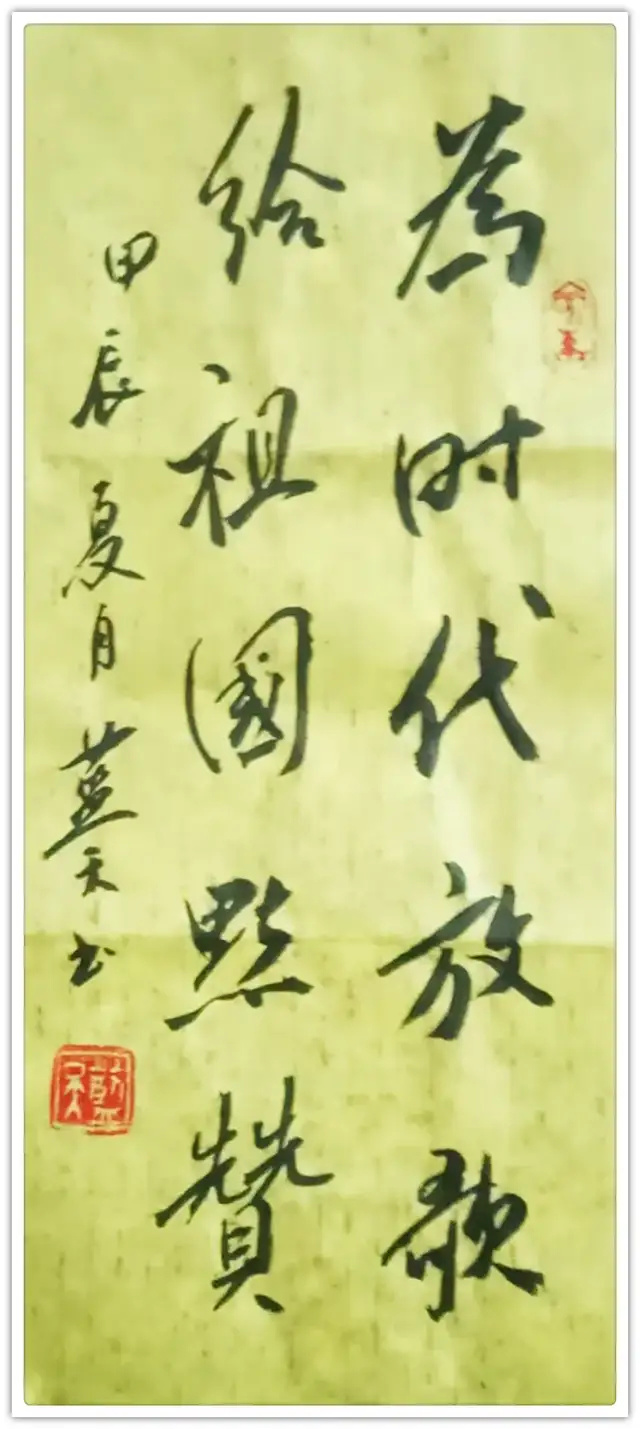 為时代放歌
给祖國點贊
甲辰夏月蓝天书